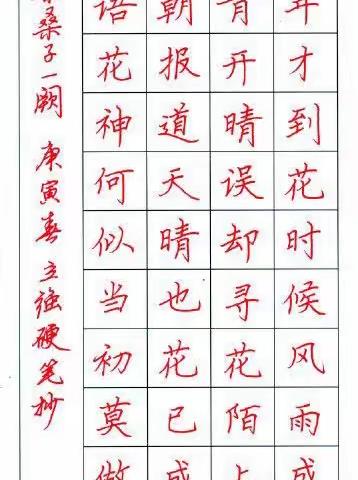 年才到花时候风雨成
肯开晴误却寻花陌上
朝报道天晴也花已成
语花神何似当初莫做
桑子一阕 庚寅春 立强硬笔抄